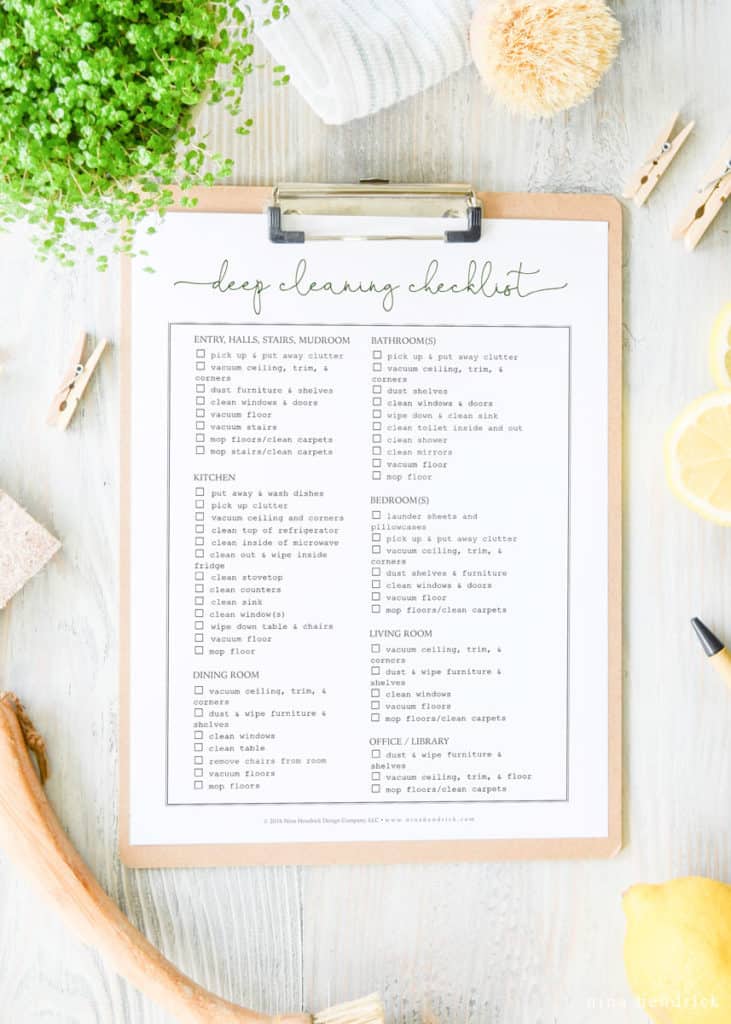 deep cleaning checklist
ENTRY, HALLS, STAIRS, MUDROOM
☐ pick up & put away clutter
☐ vacuum ceiling, trim, &
corners
☐ dust furniture & shelves
☐ clean windows & doors
☐ vacuum floor
☐ vacuum stairs
☐ mop floors/clean carpets
☐ mop stairs/clean carpets
KITCHEN
☐ put away & wash dishes
☐ pick up clutter
☐ vacuum ceiling and corners
☐ clean top of refrigerator
☐ clean inside of microwave
☐ clean out & wipe inside
fridge
☐ clean stovetop
☐ clean counters
☐ clean sink
☐ clean window(s)
☐ wipe down table & chairs
☐ vacuum floor
☐ mop floor
DINING ROOM
☐ vacuum ceiling, trim, &
corners
☐ dust & wipe furniture &
shelves
☐ clean windows
☐ clean table
☐ remove chairs from room
☐ vacuum floors
☐ mop floors
BATHROOM(S)
☐ pick up & put away clutter
☐ vacuum ceiling, trim, &
corners
☐ dust shelves
☐ clean windows & doors
☐ wipe down & clean sink
☐ clean toilet inside and out
☐ clean shower
☐ clean mirrors
☐ vacuum floor
☐ mop floor
BEDROOM(S)
☐ launder sheets and
pillowcases
☐ pick up & put away clutter
☐ vacuum ceiling, trim, &
corners
☐ dust shelves & furniture
☐ clean windows & doors
☐ vacuum floor
☐ mop floors/clean carpets
LIVING ROOM
☐ vacuum ceiling, trim, &
corners
☐ dust & wipe furniture &
shelves
☐ clean windows
☐ vacuum floors
☐ mop floors/clean carpets
OFFICE / LIBRARY
☐ dust & wipe furniture &
shelves
☐ vacuum ceiling, trim, & floor
☐ mop floors/clean carpets
© 2016 Nina Hendrick Design Company, LLC • www.ninahendrick.com
nina hendrick